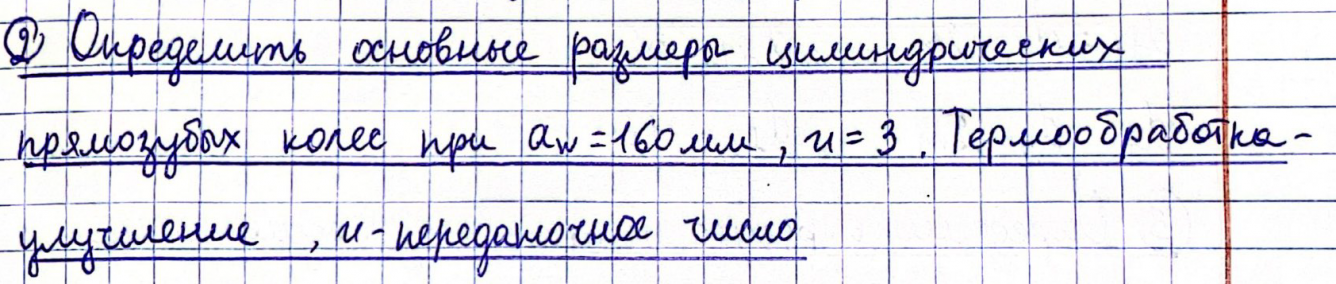 ② Определить основные размеры цилиндрических
прямозубых колес при aw=160мм, u=3. Термообработка-
улучшение, u-передаточное число